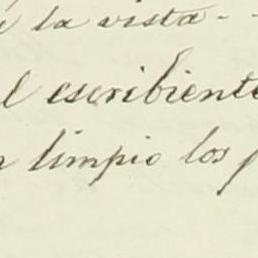 a la vista - -
el escribiente
limpio los